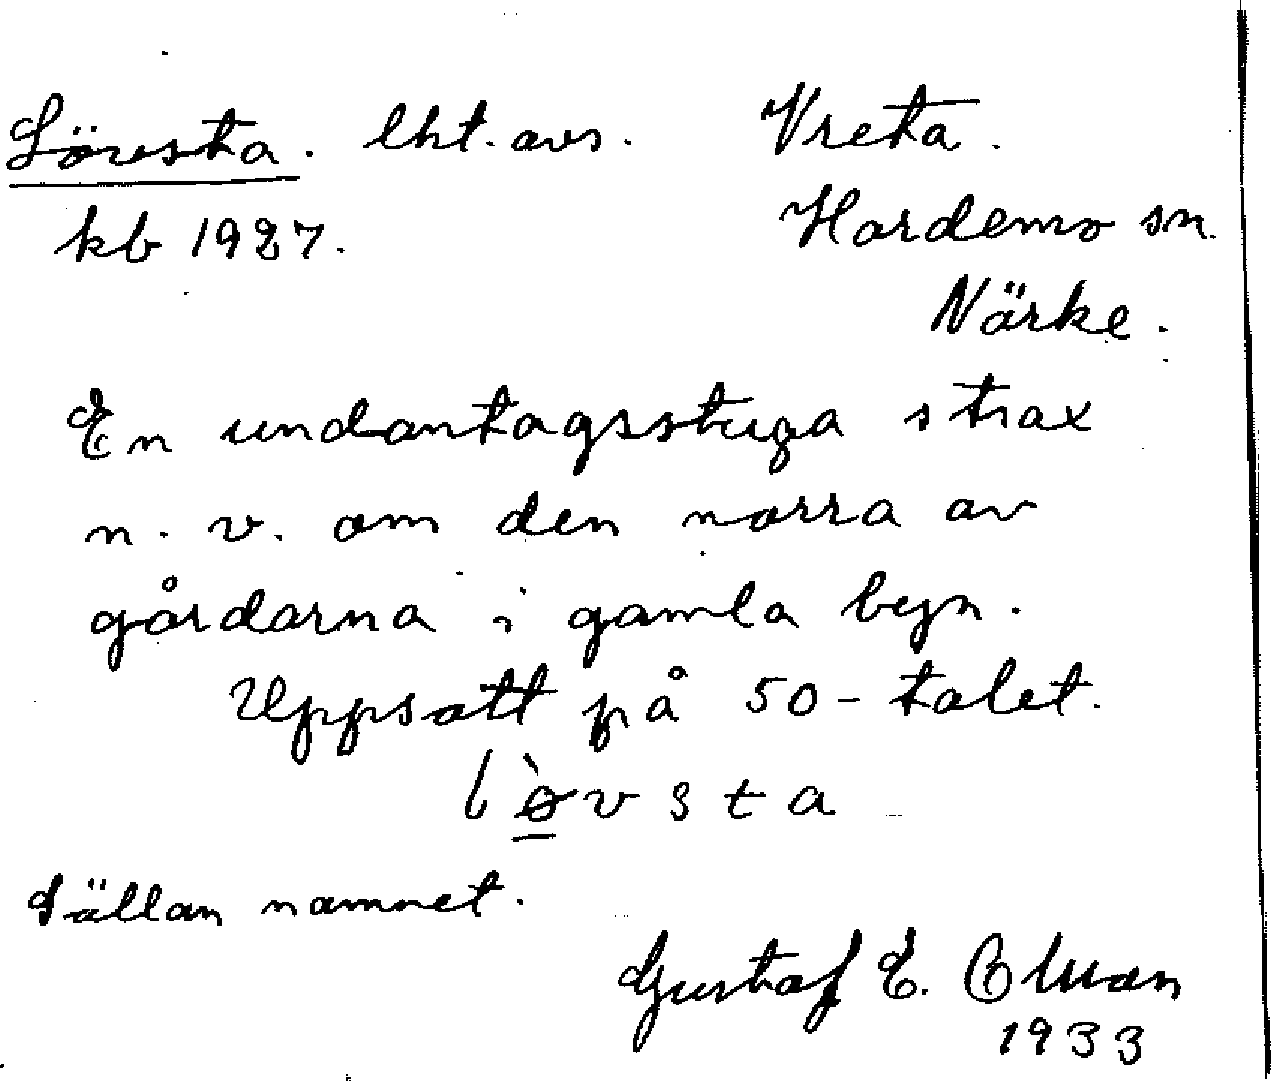 Lövsta. lht. avs. Vreta.
kb 1927. Hardemo sn.
Närke.
En undantagsstuga strax
n. v. om den norra av
gårdarna i gamla byn.
Uppsatt på 50-talet.
lòvsta
Sällan namnet.
Gustaf E.
1933